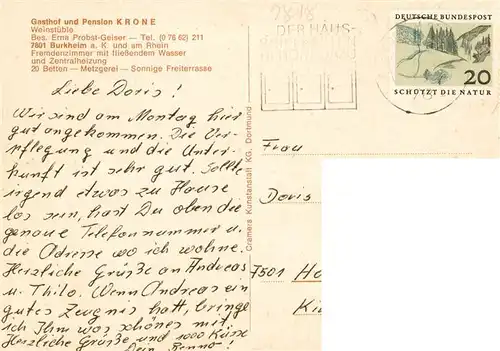 Gasthof und Pension KRONE
Weinstüble
Bes. Erna Probst-Geiser — Tel. (0 76 62) 211
7801 Burkheim a. K. und am Rhein
Fremdenzimmer mit fließendem Wasser
und Zentralheizung
20 Betten — Metzgerei — Sonnige Freiterrasse
Liebe Doris!
Wir sind am Montag hier
gut angekommen. Die Ver-
pflegung und die Unter-
kunft ist sehr gut. Sollte
irgend etwas zu Hause
los sein, hast Du oben die
genaue Telefonnummer u.
die Adresse wo ich wohne.
Herzliche Grüße an Andreas
u. Thilo. Wenn Andreas ein
gutes Zeugnis hatt, bringe
ich Ihm was schönes mit.
Herzliche Grüße und 1000 Küsse
Dein Benno!
Cramers Kunstanstalt KG, Dortmund
DER HAUS-
DEUTSCHE BUNDESPOST
20
SCHÜTZT DIE NATUR
Frau
Doris
7501